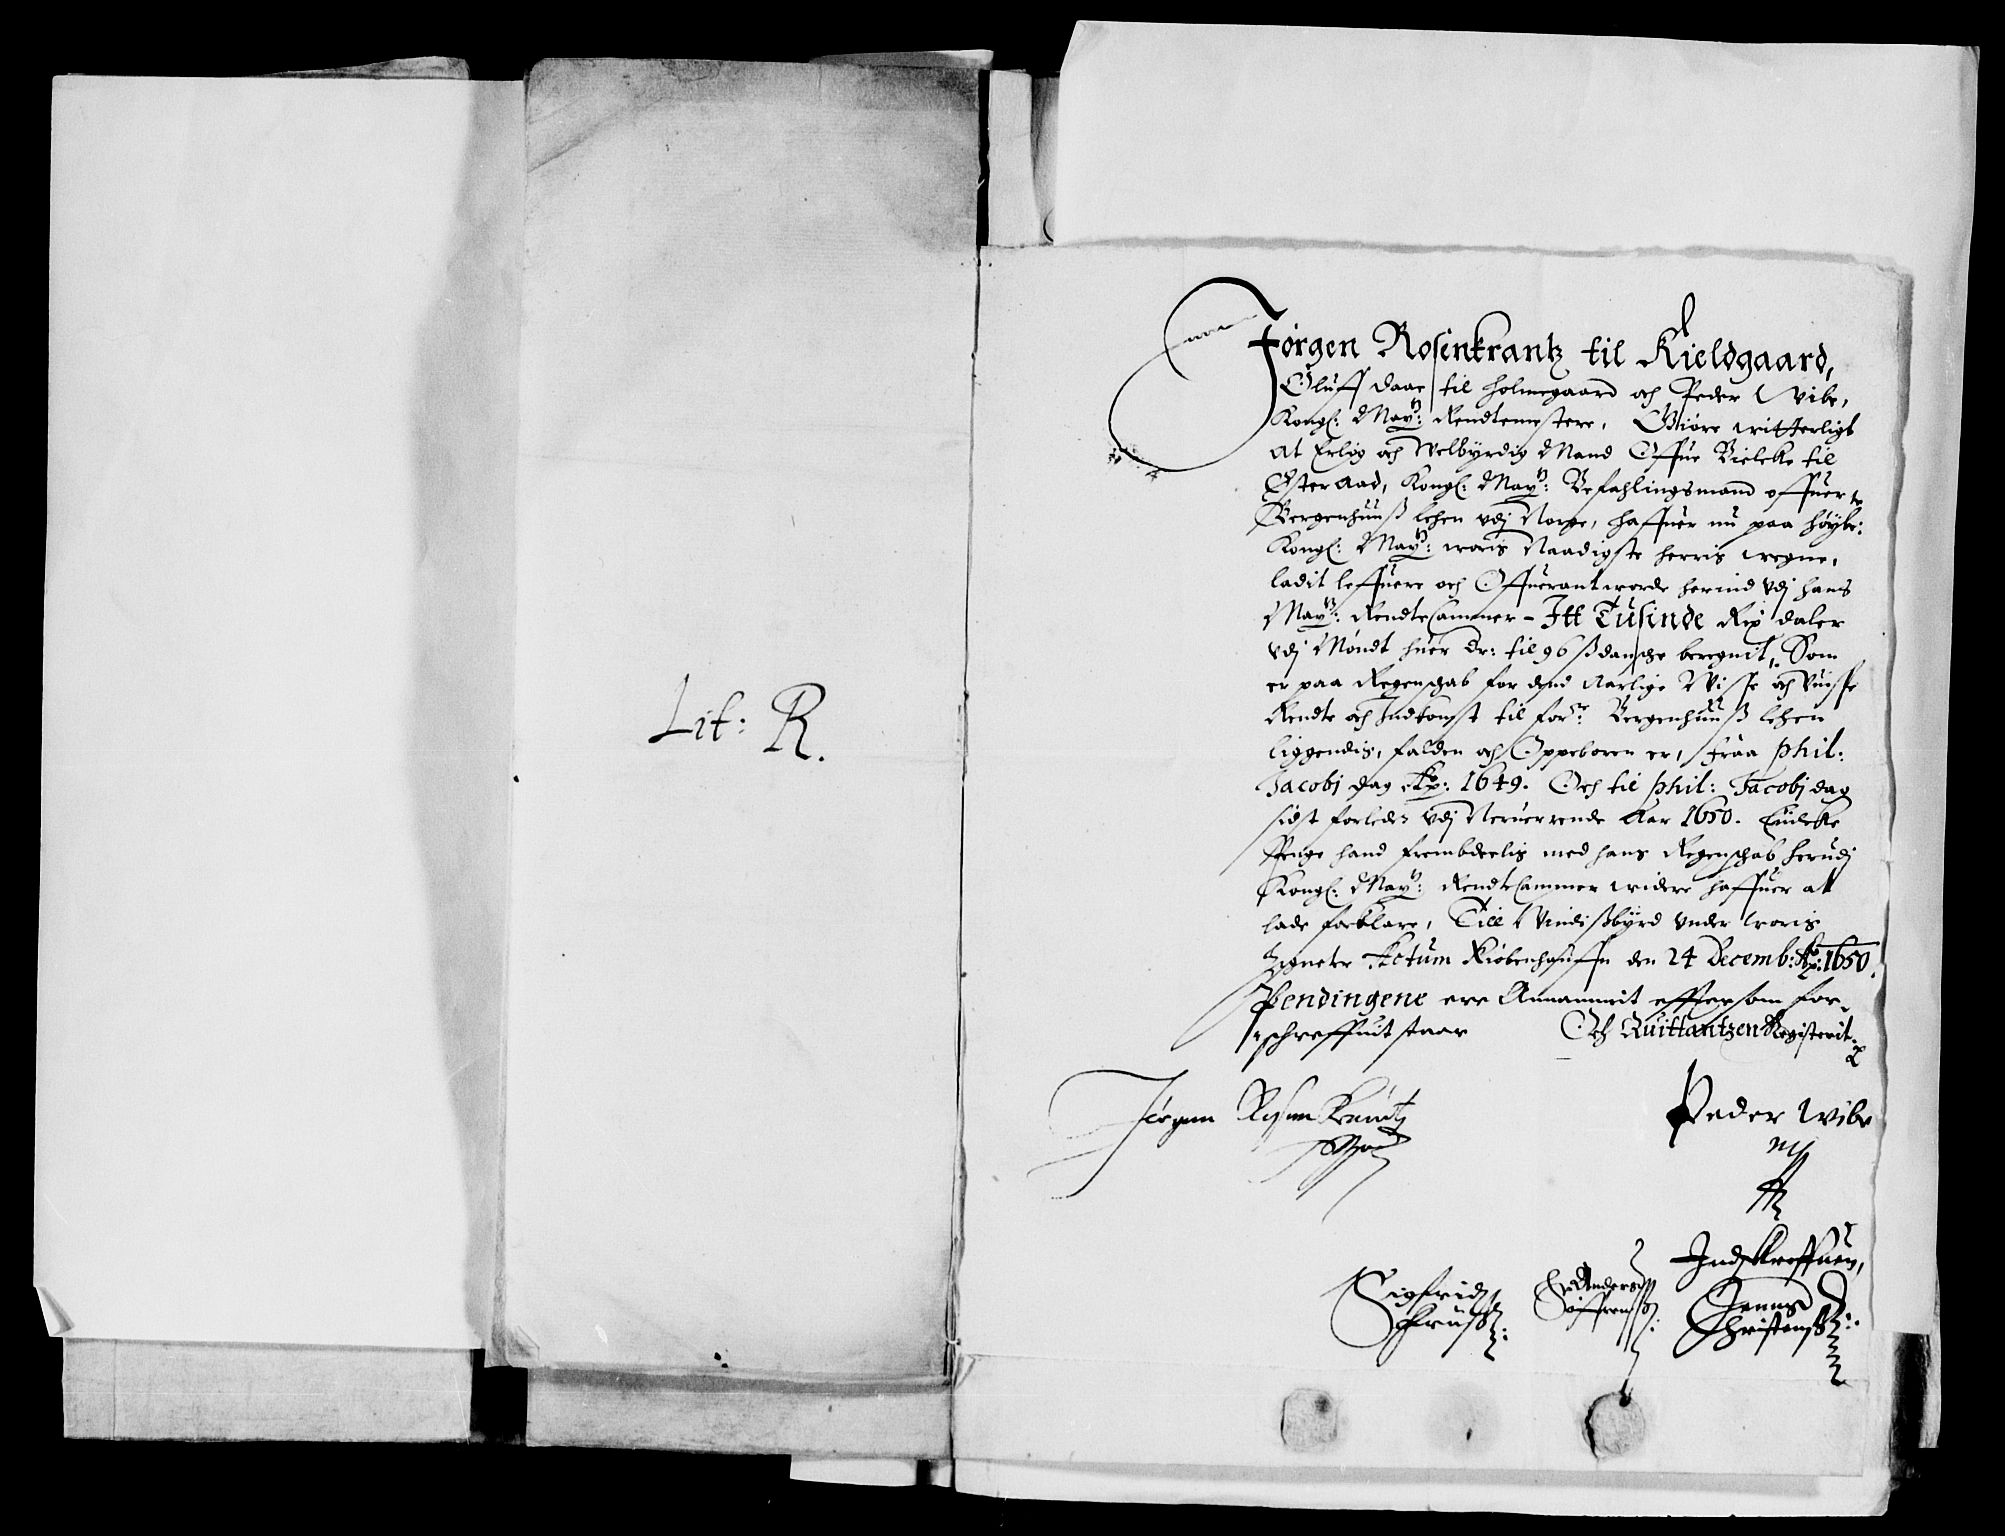 Lit: R.
Jørgen Rosenkrantz til Kieldgaard,
Oluff Daae til Holmegaard och Peder Wibe,
Kongl: May:tz Rendtemestere, Giøre witterligt
at Erlig och Welbyrdig Mand Offue Bielcke til
Østeraad, Kongl: May:tz Befahlingsmand offuer
Bergenhuuß lehen vdj Norge, haffuer nu paa høybe:te
Kongl: May:tz woris Naadigste herris wegne,
ladit leffuere och Offuerantworde herind vdj hans
May:tz RendteCammer - Itt Tusinde Rix daler
vdj Møndt huer Dr: til 96 ß danske beregnit, Som
er paa Regenschab for dend Aarlige Wisse och Vuisse
Rendte och Indkomst til for:ne Bergenhuuß lehen
liggendis, falden och Oppeboren er, Fraa Phil:
Jacobj dag Ao: 1649. Och til Phil: Jacobj dag
sidst forleden vdj Nerwerende Aar 1650. Huilcke
Penge hand frembdeelis med hans Regenschab herudj
Kongl: May:tz RendteCammer widere haffuer at
lade forklare, Till Windißbyrd vnder woris
Zigneter Actum Kiøbenhaffn den 24 Decemb: Ao: 1650.
Pendingene ere Annammit effter som for-
schreffuit staar Och Quittantzen Registerit.
Jørgen Rosenkrantz
Peder Wibe
Indschreffuen,
Sigfrid
Anders
Jenns
Søffrenß
Christenß: